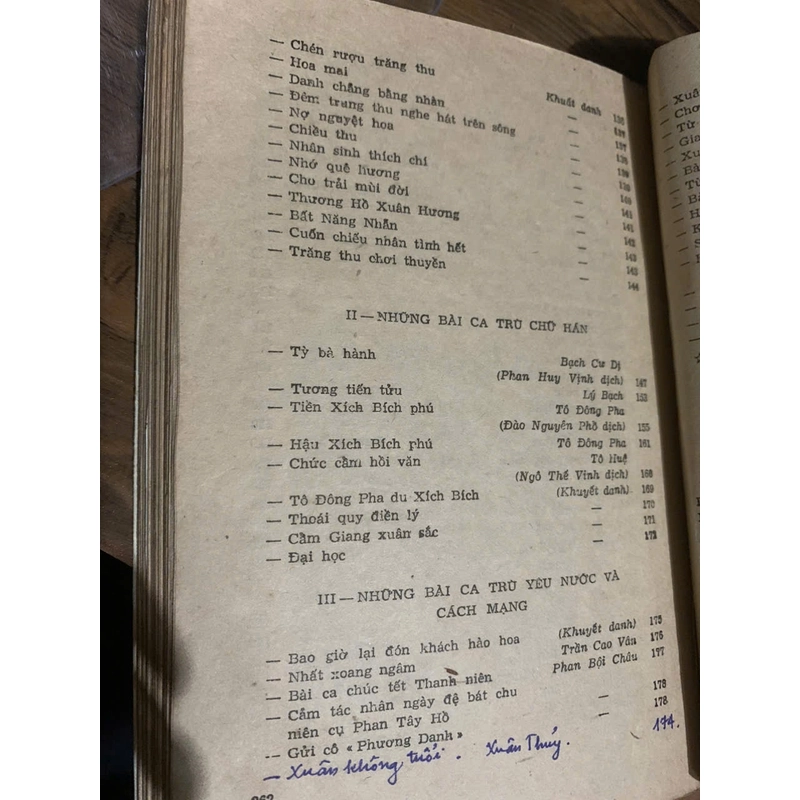 — Chén rượu trăng thu
— Hoa mai
— Danh chẳng bằng nhàn Khuất danh 136
— Đêm trung thu nghe hát trên sông — 137
— Nợ nguyệt hoa — 137
— Chiều thu — 138
— Nhân sinh thích chí — 139
— Nhớ quê hương —
— Cho trải mùi đời — 140
— Thương Hồ Xuân Hương — 141
— Bất Năng Nhẫn — 141
— Cuốn chiếu nhân tình hết — 142
— Trăng thu chơi thuyền — 143
— 143
— 144
II — NHỮNG BÀI CA TRÙ CHỮ HÁN
— Tỳ bà hành Bạch Cư Dị
(Phan Huy Vịnh dịch) 147
— Tương tiến tửu Lý Bạch 153
— Tiền Xích Bích phú Tô Đông Pha
(Đào Nguyên Phổ dịch) 155
— Hậu Xích Bích phú Tô Đông Pha 161
— Chức cẩm hồi văn Tô Huệ
(Ngô Thế Vinh dịch) 168
— Tô Đông Pha du Xích Bích (Khuyết danh) 169
— Thoái quy điền lý — 170
— Cẩm Giang xuân sắc — 171
— Đại học — 173
III — NHỮNG BÀI CA TRÙ YÊU NƯỚC VÀ
CÁCH MẠNG
— Bao giờ lại đón khách hào hoa (Khuyết danh) 175
— Nhất xoang ngâm Trần Cao Vân 176
— Bài ca chúc tết Thanh niên Phan Bội Châu 177
— Cảm tác nhân ngày đệ bát chu
niên cụ Phan Tây Hồ — 178
— Gửi cô « Phương Danh » — 178
— Xuân không tuổi. Xuân Thủy. 179.
— Xuâ
— Chơ
— Từ
— Gia
— Xu
— Bà
— Từ
— Bá
— H
— K
— S